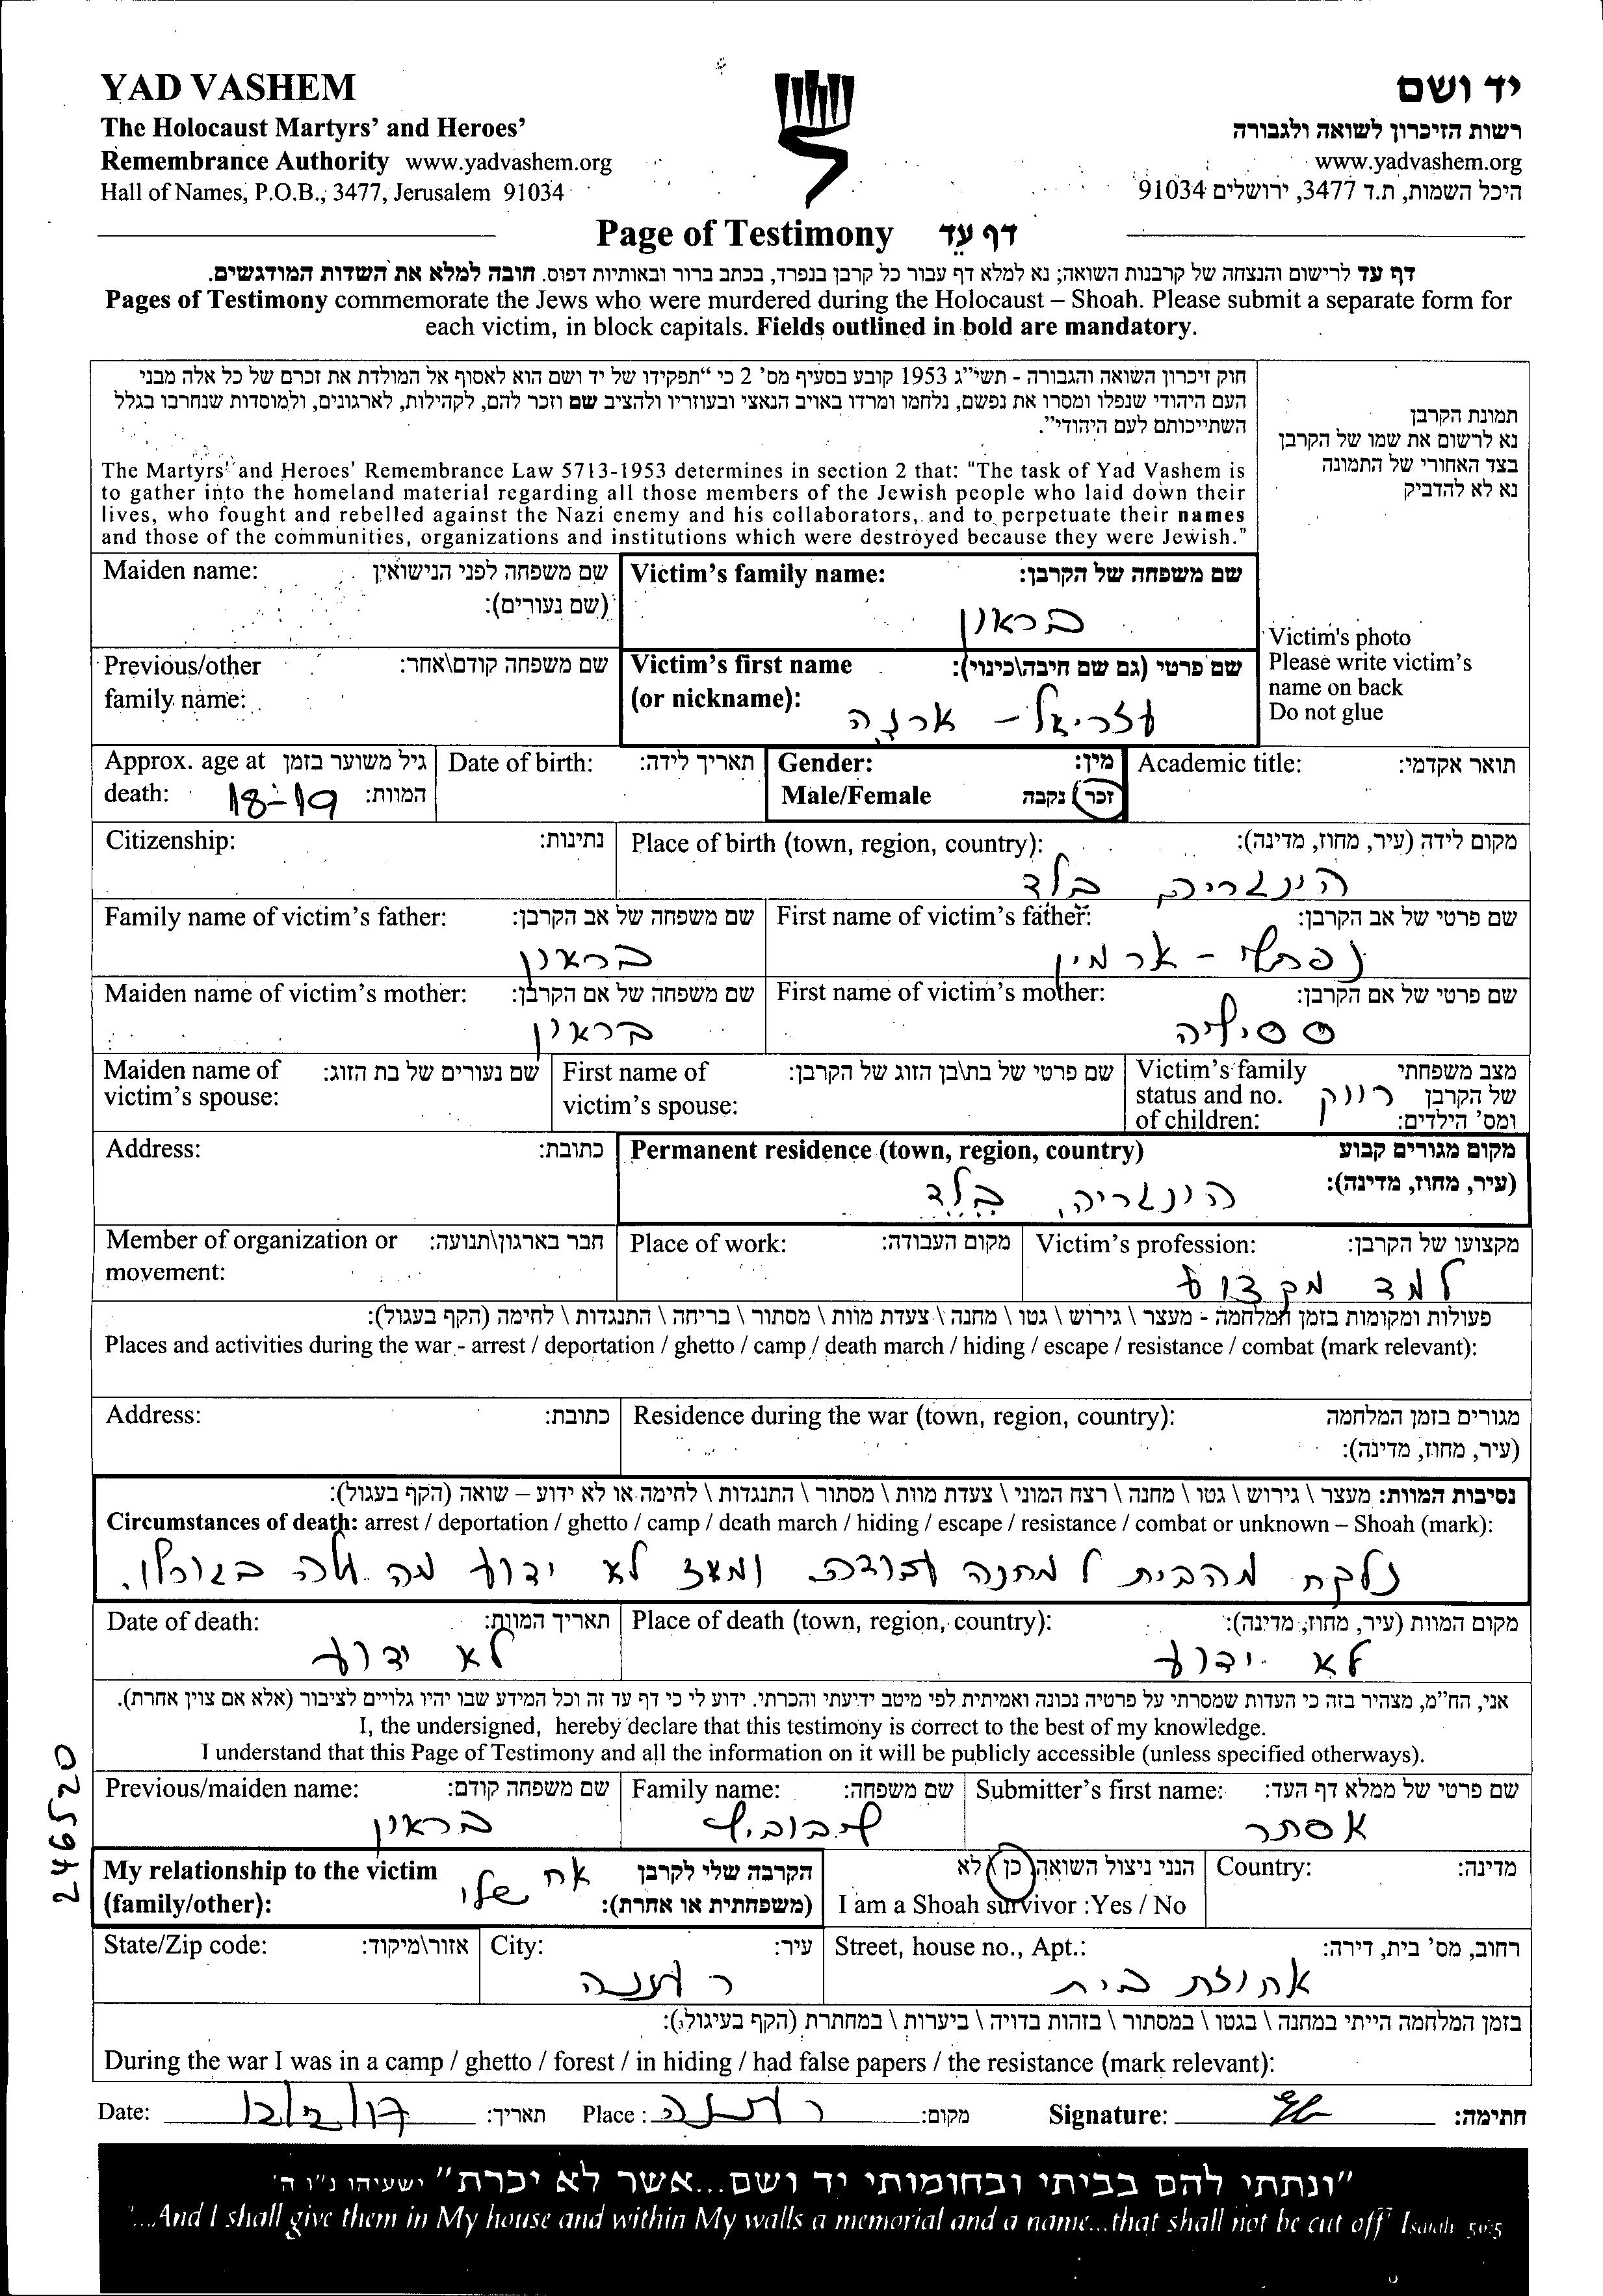 YAD VASHEM
The Holocaust Martyrs' and Heroes'
Remembrance Authority www.yadvashem.org
Hall of Names, P.O.B., 3477, Jerusalem 91034
יד ושם
רשות הזיכרון לשואה ולגבורה
www.yadvashem.org
היכל השמות, ת.ד 3477, ירושלים 91034
Page of Testimony דף עד
דף עד לרישום והנצחה של קרבנות השואה; נא למלא דף עבור כל קרבן בנפרד, בכתב ברור ובאותיות דפוס. חובה למלא את השדות המודגשים.
Pages of Testimony commemorate the Jews who were murdered during the Holocaust – Shoah. Please submit a separate form for
each victim, in block capitals. Fields outlined in bold are mandatory.
חוק זיכרון השואה והגבורה - תשי"ג 1953 קובע בסעיף מס' 2 כי "תפקידו של יד ושם הוא לאסוף אל המולדת את זכרם של כל אלה מבני
העם היהודי שנפלו ומסרו את נפשם, נלחמו ומרדו באויב הנאצי ובעוזריו ולהציב שם וזכר להם, לקהילות, לארגונים, ולמוסדות שנחרבו בגלל
השתייכותם לעם היהודי".
The Martyrs' and Heroes' Remembrance Law 5713-1953 determines in section 2 that: "The task of Yad Vashem is
to gather into the homeland material regarding all those members of the Jewish people who laid down their
lives, who fought and rebelled against the Nazi enemy and his collaborators, and to perpetuate their names
and those of the communities, organizations and institutions which were destroyed because they were Jewish."
תמונת הקרבן
נא לרשום את שמו של הקרבן
בצד האחורי של התמונה
נא לא להדביק
Victim's photo
Please write victim's
name on back
Do not glue
Maiden name: שם משפחה לפני הנישואין
(שם נעורים):
Victim's family name: שם משפחה של הקרבן:
בראון
Previous/other שם משפחה קודם\אחר:
family name:
Victim's first name שם פרטי (גם שם חיבה\כינוי):
(or nickname): עזריאל - ארנה
Approx. age at גיל משוער בזמן
death: 18-19 המוות:
Date of birth: תאריך לידה:
Gender: מין:
Male/Female זכר\ נקבה
Academic title: תואר אקדמי:
Citizenship: נתינות:
Place of birth (town, region, country): מקום לידה (עיר, מחוז, מדינה):
הונגריה בלד
Family name of victim's father: שם משפחה של אב הקרבן:
בראון
First name of victim's father: שם פרטי של אב הקרבן:
נפתלי - ארמין
Maiden name of victim's mother: שם משפחה של אם הקרבן:
בראון
First name of victim's mother: שם פרטי של אם הקרבן:
ססיליה
Maiden name of שם נעורים של בת הזוג:
victim's spouse:
First name of שם פרטי של בת\בן הזוג של הקרבן:
victim's spouse:
Victim's family מצב משפחתי
status and no. של הקרבן רווק
of children: ומס' הילדים:
Address: כתובת:
Permanent residence (town, region, country) מקום מגורים קבוע
(עיר, מחוז, מדינה):
הונגריה, בלד
Member of organization or חבר בארגון\תנועה:
movement:
Place of work: מקום העבודה:
Victim's profession: מקצועו של הקרבן:
למד מקצוע
פעולות ומקומות בזמן המלחמה - מעצר \ גירוש \ גטו \ מחנה \ צעדת מוות \ מסתור \ בריחה \ התנגדות \ לחימה (הקף בעגול):
Places and activities during the war - arrest / deportation / ghetto / camp / death march / hiding / escape / resistance / combat (mark relevant):
Address: כתובת:
Residence during the war (town, region, country): מגורים בזמן המלחמה
(עיר, מחוז, מדינה):
נסיבות המוות: מעצר \ גירוש \ גטו \ מחנה \ רצח המוני \ צעדת מוות \ מסתור \ התנגדות \ לחימה או לא ידוע – שואה (הקף בעגול):
Circumstances of death: arrest / deportation / ghetto / camp / death march / hiding / escape / resistance / combat or unknown – Shoah (mark):
נלקח מהבית למחנה עבודה ומאז לא ידוע מה עלה בגורלו.
Date of death: תאריך המוות:
לא ידוע
Place of death (town, region, country): מקום המוות (עיר, מחוז, מדינה):
לא ידוע
אני, הח"מ, מצהיר בזה כי העדות שמסרתי על פרטיה נכונה ואמיתית לפי מיטב ידיעתי והכרתי. ידוע לי כי דף עד זה וכל המידע שבו יהיו גלויים לציבור (אלא אם צוין אחרת).
I, the undersigned, hereby declare that this testimony is correct to the best of my knowledge.
I understand that this Page of Testimony and all the information on it will be publicly accessible (unless specified otherways).
Previous/maiden name: שם משפחה קודם:
בראון
Family name: שם משפחה:
Submitter's first name: שם פרטי של ממלא דף העד:
אסתר
My relationship to the victim הקרבה שלי לקרבן אח שלי
(family/other): (משפחתית או אחרת):
הנני ניצול השואה: כן \ לא
I am a Shoah survivor :Yes / No
Country: מדינה:
State/Zip code: אזור\מיקוד:
City: עיר:
רעננה
Street, house no., Apt.: רחוב, מס' בית, דירה:
אחוזת בית
בזמן המלחמה הייתי במחנה \ בגטו \ במסתור \ בזהות בדויה \ ביערות \ במחתרת (הקף בעיגול):
During the war I was in a camp / ghetto / forest / in hiding / had false papers / the resistance (mark relevant):
Date: 12/2/17 תאריך: Place : רעננה מקום: Signature: חתימה:
"ונתתי להם בביתי ובחומותי יד ושם...אשר לא יכרת" ישעיהו נ"ו ה'
"...And I shall give them in My house and within My walls a memorial and a name...that shall not be cut off" Isaiah 56:5
246520